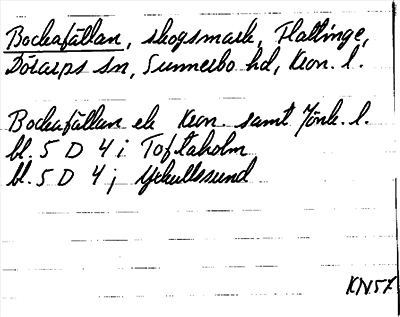 Bockafällan, skogsmark, Flattinge,
Dörarps sn, Sunnerbo hd, Kron. l.
Bockafällan ek Kron. samt Jönk. l.
bl. 5 D 4 i Toftaholm
bl. 5 D 4 j Ykullssund
KN57